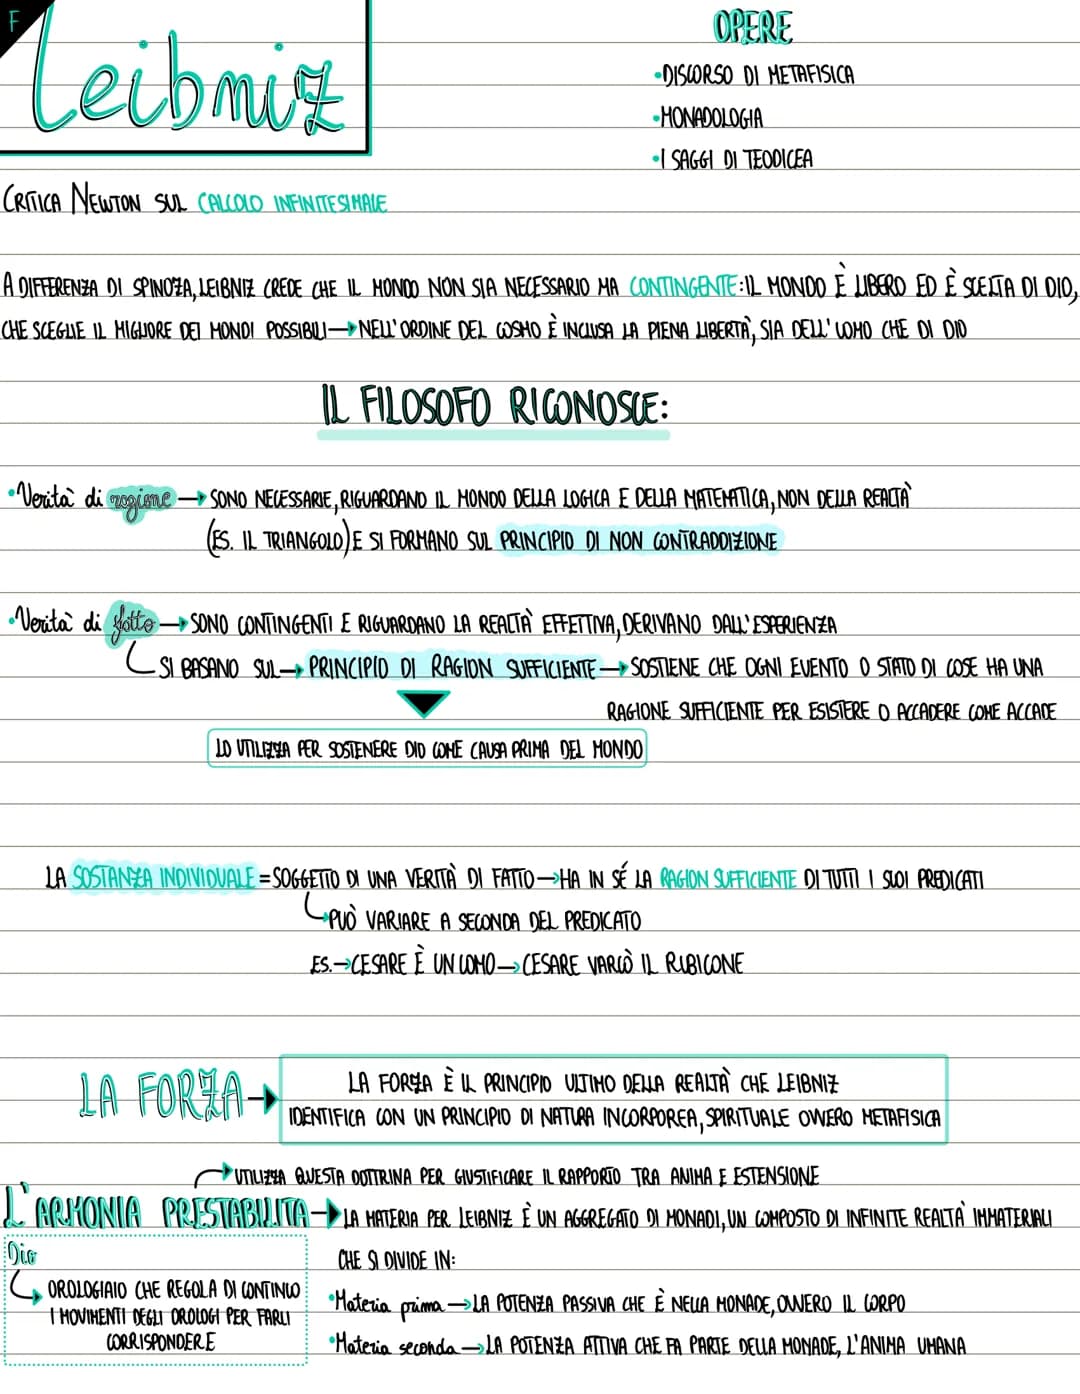 F
Leibniz
OPERE
•DISCORSO DI METAFISICA
•MONADOLOGIA
•I SAGGI DI TEODICEA
CRITICA NEWTON SUL CALCOLO INFINITESIMALE
A DIFFERENZA DI SPINOZA, LEIBNIZ CREDE CHE IL MONDO NON SIA NECESSARIO MA CONTINGENTE: IL MONDO È LIBERO ED È SCELTA DI DIO,
CHE SCEGLIE IL MIGLIORE DEI MONDI POSSIBILI→NELL'ORDINE DEL COSMO È INCLUSA LA PIENA LIBERTÀ, SIA DELL'UOMO CHE DI DIO
IL FILOSOFO RICONOSCE:
•Verità di ragione → SONO NECESSARIE, RIGUARDANO IL MONDO DELLA LOGICA E DELLA MATEMATICA, NON DELLA REALTÀ
(ES. IL TRIANGOLO) E SI FORMANO SUL PRINCIPIO DI NON CONTRADDIZIONE
•Verità di fatto → SONO CONTINGENTI E RIGUARDANO LA REALTÀ EFFETTIVA, DERIVANO DALL'ESPERIENZA
SI BASANO SUL → PRINCIPIO DI RAGION SUFFICIENTE → SOSTIENE CHE OGNI EVENTO O STATO DI COSE HA UNA
RAGIONE SUFFICIENTE PER ESISTERE O ACCADERE COME ACCADE
LO UTILIZZA PER SOSTENERE DIO COME CAUSA PRIMA DEL MONDO
LA SOSTANZA INDIVIDUALE = SOGGETTO DI UNA VERITÀ DI FATTO → HA IN SÉ LA RAGION SUFFICIENTE DI TUTTI I SUOI PREDICATI
PUÒ VARIARE A SECONDA DEL PREDICATO
ES.→CESARE È UN UOMO→CESARE VARCÒ IL RUBICONE
LA FORZA→
LA FORZA È IL PRINCIPIO ULTIMO DELLA REALTÀ CHE LEIBNIZ
IDENTIFICA CON UN PRINCIPIO DI NATURA INCORPOREA, SPIRITUALE OVVERO METAFISICA
UTILIZZA QUESTA DOTTRINA PER GIUSTIFICARE IL RAPPORTO TRA ANIMA E ESTENSIONE
L'ARMONIA PRESTABILITA→LA MATERIA PER LEIBNIZ È UN AGGREGATO DI MONADI, UN COMPOSTO DI INFINITE REALTÀ IMMATERIALI
CHE SI DIVIDE IN:
Dio
OROLOGIAIO CHE REGOLA DI CONTINUO
I MOVIMENTI DEGLI OROLOGI PER FARLI
CORRISPONDERE
•Materia prima→LA POTENZA PASSIVA CHE È NELLA MONADE, OVVERO IL CORPO
•Materia seconda→LA POTENZA ATTIVA CHE FA PARTE DELLA MONADE, L'ANIMA UMANA